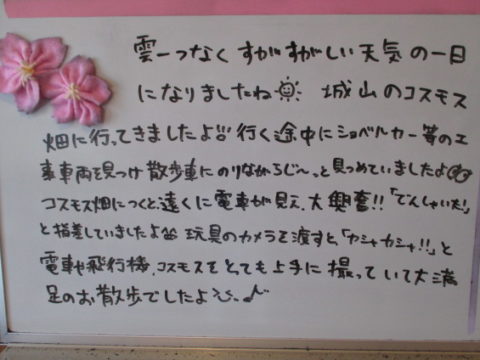 雲一つなくすがすがしい天気の一日
になりましたね 城山のコスモス
畑に行ってきましたよ!! 行く途中にショベルカー等の工
事車両を見つけ散歩車にのりながらじ〜っと見つめていましたよ
コスモス畑につくと遠くに電車が見え、大興奮!!「でんしゃいた!」
と指差していましたよ 玩具のカメラを渡すと「カシャカシャ!!」と
電車や飛行機、コスモスをとても上手に撮っていて大満
足のお散歩でしたよ♪